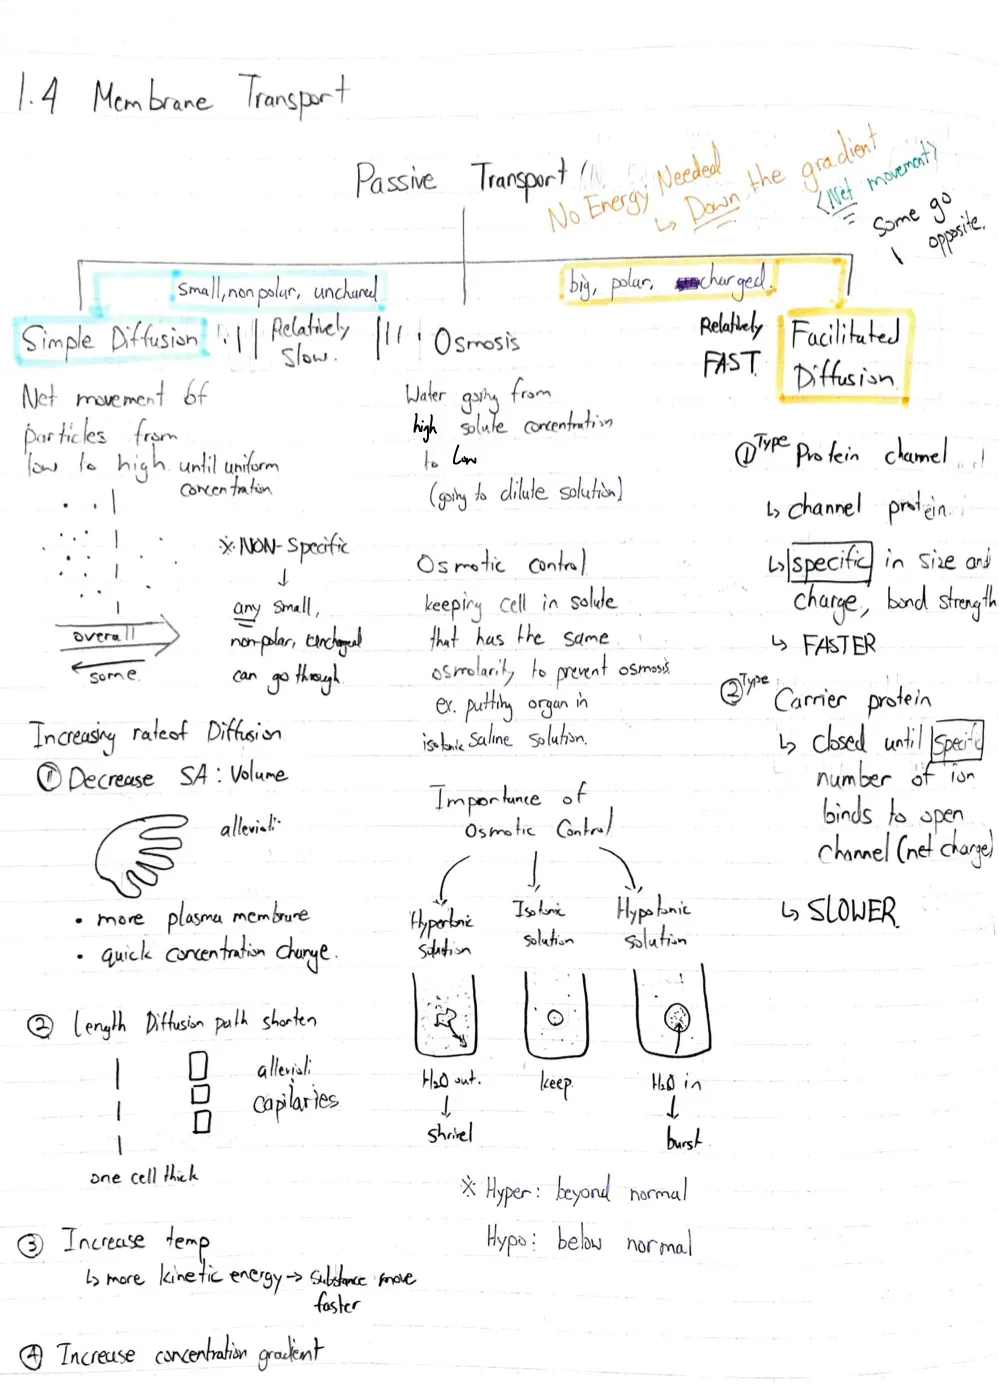 1.4 Membrane Transport
Passive Transport
No Energy Needed
↳ Down the gradient
(Net movement)
Some go
opposite.
small, non polar, unchared
big, polar, charged.
Simple Diffusion
Relatively
Slow.
Osmosis
Relatively
FAST.
Facilitated
Diffusion.
Net movement of
particles from
low to high. until uniform
concentration
※ NON-Specific
↓
any small,
non-polar, uncharged
can go through.
overall
some.
Increasing rate of Diffusion
① Decrease SA : Volume
allevioli
• more plasma membrane
• quick concentration change.
② Length Diffusion path shorten
allevioli
capilaries
one cell thick
③ Increase temp
↳ more kinetic energy → substance move
faster
④ Increase concentration gradient
Water going from
high solute concentration
to Low
(going to dilute solution)
Osmotic control
keeping cell in solute
that has the same
osmolarity to prevent osmosis.
ex. putting organ in
isotonic saline solution.
Importance of
Osmotic Control
Hypertonic
solution
Isotonic
solution
Hypotonic
solution
H₂O out.
↓
shrivel
keep.
H₂O in
↓
burst.
※ Hyper: beyond normal
Hypo: below normal
① Type Protein channel
↳ channel protein.
↳ specific in size and
charge, bond strength
↳ FASTER
② Type Carrier protein
↳ closed until specific
number of ion
binds to open
channel (net charge)
↳ SLOWER